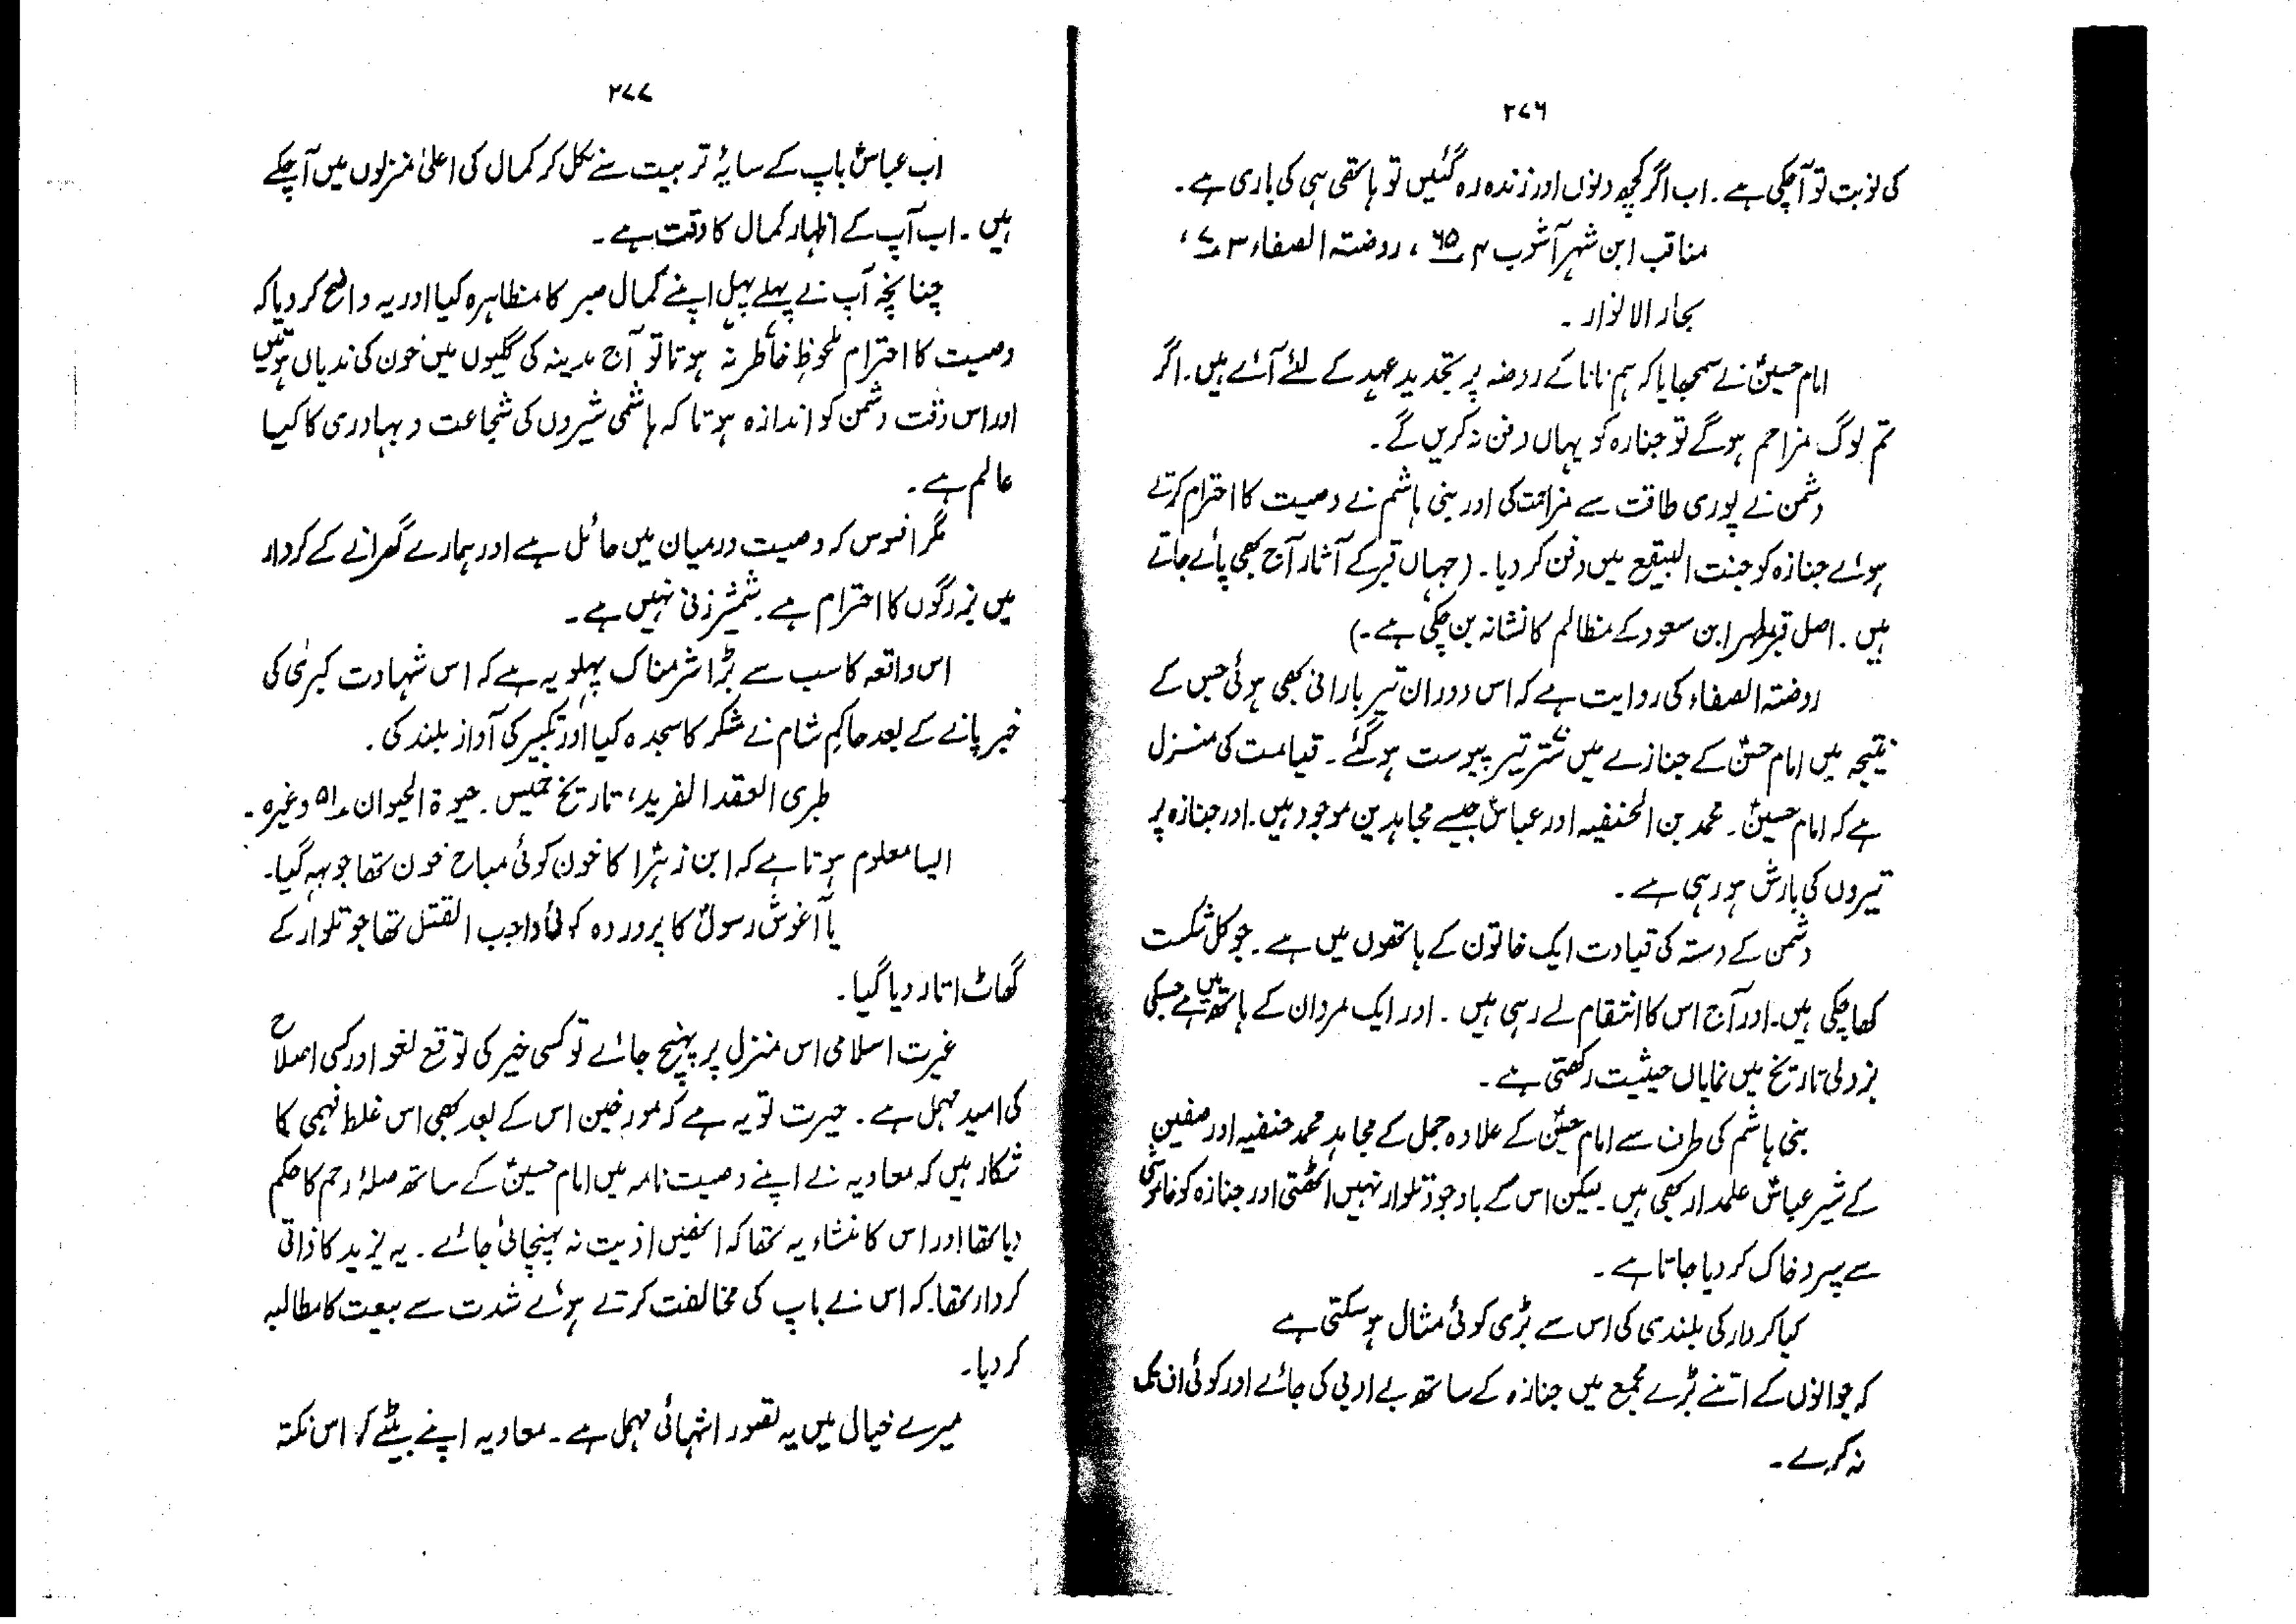 ۲۷۶
کی نوبت تو آچکی ہے۔ اب اگر کچھ دنوں اور زندہ رہ گئیں تو ہاتھی ہی کی باری ہے۔
مناقب ابن شہر آشوب ۴ ۶۵ ، روضتہ الصفاء ۳ ۷ ،
بحار الانوار ۔
امام حسینؑ نے سمجھایا کہ ہم نانا کے روضہ پر تجدید عہد کے لئے آئے ہیں۔ اگر
تم لوگ مزاحم ہوگے تو جنازہ کو یہاں دفن نہ کریں گے۔
دشمن نے پوری طاقت سے مزاحمت کی اور بنی ہاشم نے وصیت کا احترام کرتے
ہوئے جنازہ کو جنت البقیع میں دفن کر دیا۔ (جہاں قبر کے آثار آج بھی پائے جاتے
ہیں۔ اصل قبر مطہر ابن سعود کے مظالم کا نشانہ بن چکی ہے۔)
روضتہ الصفاء کی روایت ہے کہ اس دوران تیر بارانی بھی ہوئی جس کے
نتیجہ میں امام حسنؑ کے جنازے میں ستر تیر پیوست ہوگئے۔ قیامت کی منزل
ہے کہ امام حسینؑ۔ محمد بن الحنفیہ اور عباسؑ جیسے مجاہدین موجود ہیں۔ اور جنازہ پر
تیروں کی بارش ہو رہی ہے۔
دشمن کے دستہ کی قیادت ایک خاتون کے ہاتھوں میں ہے۔ جو کل شکست
کھا چکی ہیں۔ اور آج اس کا انتقام لے رہی ہیں۔ اور ایک مردان کے ہاتھ میں ہے جسکی
بزدلی تاریخ میں نمایاں حیثیت رکھتی ہے۔
بنی ہاشم کی طرف سے امام حسینؑ کے علاوہ جمل کے مجاہد محمد حنفیہ اور صفین
کے شیر عباسؑ علمدار بھی ہیں۔ لیکن اس کے باوجود تلوار نہیں اٹھتی اور جنازہ کو خاموشی
سے سپرد خاک کر دیا جاتا ہے۔
کیا کردار کی بلندی کی اس سے بڑی کوئی مثال ہو سکتی ہے
کہ جوانوں کے اتنے بڑے مجمع میں جنازہ کے ساتھ بے ادبی کی جائے اور کوئی اف تک
نہ کرے۔
۲۷۷
اب عباسؑ باپ کے سایۂ تربیت سے نکل کر کمال کی اعلیٰ منزلوں میں آچکے
ہیں۔ اب آپ کے اظہار کمال کا وقت ہے۔
چنانچہ آپ نے پہلے پہل اپنے کمال صبر کا مظاہرہ کیا اور یہ واضح کر دیا کہ
وصیت کا احترام ملحوظِ خاطر نہ ہوتا تو آج مدینہ کی گلیوں میں خون کی ندیاں ہوتیں
اور اس وقت دشمن کو اندازہ ہوتا کہ ہاشمی شیروں کی شجاعت و بہادری کا کیا
عالم ہے۔
مگر افسوس کہ وصیت درمیان میں حائل ہے اور ہمارے گھرانے کے کردار
میں بزرگوں کا احترام ہے۔ شمشیر زنی نہیں ہے۔
اس واقعہ کا سب سے بڑا شرمناک پہلو یہ ہے کہ اس شہادت کبریٰ کی
خبر پانے کے بعد حاکم شام نے شکر کا سجدہ کیا اور تکبیر کی آواز بلند کی۔
طبری العقد الفرید، تاریخ خمیس۔ حیوۃ الحیوان ۵۱ وغیرہ۔
ایسا معلوم ہوتا ہے کہ ابن زہرا کا خون کوئی مباح خون تھا جو بہہ گیا۔
یا آغوش رسولؐ کا پروردہ کوئی واجب القتل تھا جو تلوار کے
گھاٹ اتار دیا گیا۔
غیرت اسلامی اس منزل پر پہنچ جائے تو کسی خیر کی توقع لغو اور کسی اصلاح
کی امید مہمل ہے۔ حیرت تو یہ ہے کہ مورخین اس کے بعد بھی اس غلط فہمی کا
شکار ہیں کہ معاویہ نے اپنے وصیت نامہ میں امام حسینؑ کے ساتھ صلۂ رحم کا حکم
دیا تھا اور اس کا منشاء یہ تھا کہ انھیں اذیت نہ پہنچائی جائے۔ یہ یزید کا ذاتی
کردار تھا۔ کہ اس نے باپ کی مخالفت کرتے ہوئے شدت سے بیعت کا مطالبہ
کر دیا۔
میرے خیال میں یہ تصور انتہائی مہمل ہے۔ معاویہ اپنے بیٹے کو اس نکتہ